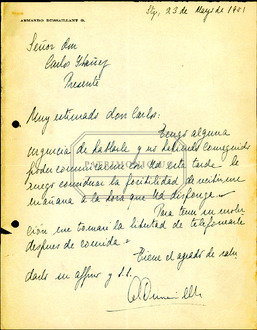 ARMANDO DUSSAILLANT G.
Stg, 23 de Mayo de 1951
Señor don
Carlos Ibáñez
Presente
Muy estimado don Carlos:
Tengo alguna
urgencia de hablarle y no habiendo conseguido
poder comunicarme con Ud esta tarde le
ruego considerar la posibilidad de recibirme
mañana a la hora que Ud disponga.
Para tener su
ción me tomaré la libertad de telefonearle
después de comida.
Tiene el agrado de salu
darlo su affmo y S.S.